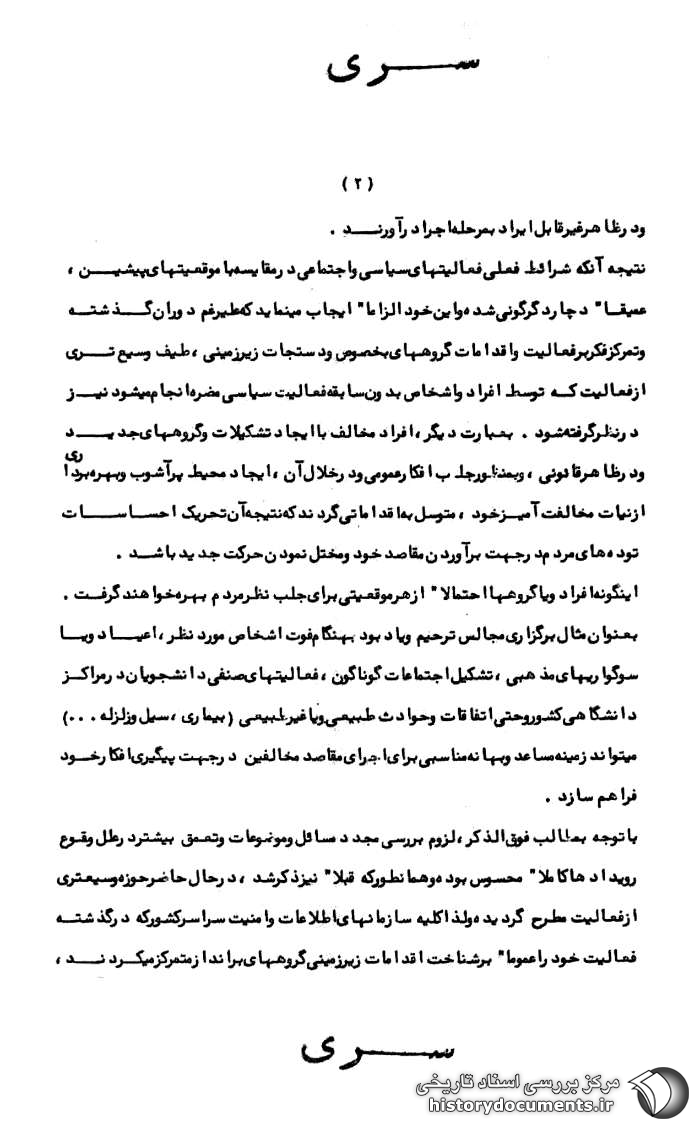 سری
(۲)
ودرظاهرغیرقابل ایراد بمرحله اجرا درآورنـــد .
نتیجه آنکه شرائط فعلی فعالیتهای سیاسی واجتماعی درمقایسه با موقعیتهای پیشیـــن ،
عمیقـا" دچارد گرگونی شده واین خود الزاما" ایجاب مینماید که علیرغم دوران گـــذشتـــه
وتمرکزفکربرفعالیت واقدامات گروههای بخصوص ودستجات زیرزمینی ، طیف وسیع تـــری
ازفعالیت کـه توسط افراد واشخاص بدون سابقه فعالیت سیاسی مضره انجام میشود نیـــز
درنظرگرفته شود . بعبارت دیگر ، افراد مخالف با ایجاد تشکیلات وگروههای جدیـــد
ودرظاهرقانونی ، وبمنظورجلب افکارعمومی ودرخلال آن ، ایجاد محیط پرآشوب وبهره برداری
ازنیات مخالفت آمیـزخود ، متوسل به اقداماتی گردند که نتیجه آن تحریک احســاســـات
توده های مردم درجهت برآوردن مقاصد خود ومختل نمودن حرکت جدید باشـــد .
اینگونه افراد ویا گروهها احتمالا" ازهرموقعیتی برای جلب نظرمردم بهره خواهند گرفـت .
بعنوان مثال برگزاری مجالس ترحیم ویاد بود بهنگام فوت اشخاص مورد نظر ، اعیـــاد ویـــا
سوگواریهای مذهبی ، تشکیل اجتماعات گوناگون ، فعالیتهای صنفی دانشجویان درمراکـــز
دانشگاهی کشوروحتی اتفاقات وحوادث طبیعی ویا غیرطبیعی (بیماری ، سیل وزلزله ...)
میتواند زمینه مساعد وبهانه مناسبی برای اجرای مقاصد مخالفین درجهت پیگیری افکارخـود
فراهم سازد .
با توجه بمطالب فوق الذکر ، لزوم بررسی مجدد مسائل وموضوعات وتعمق بیشتردرعلل وقوع
رویدادها کاملا" محسوس بوده وهمانطورکه قبلا" نیزذکرشد ، درحال حاضرحوزه وسیعتری
ازفعالیت مطرح گردیده ولذا کلیه سازمانهای اطلاعات وامنیت سراسرکشورکه درگذشتـــه
فعالیت خود راعموما" برشناخت اقدامات زیرزمینی گروههای براندازمتمرکزمیکردنـــد ،
سری
مرکز بررسی اسناد تاریخی
historydocuments.ir